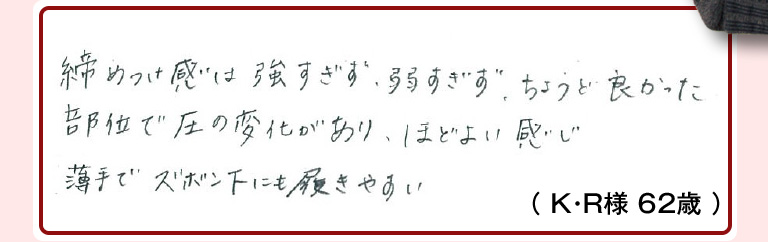 締めつけ感は強すぎず、弱すぎず、ちょうど良かった
部位で圧の変化があり、ほどよい感じ
薄手でズボン下にも履きやすい
( K・R様 62歳 )